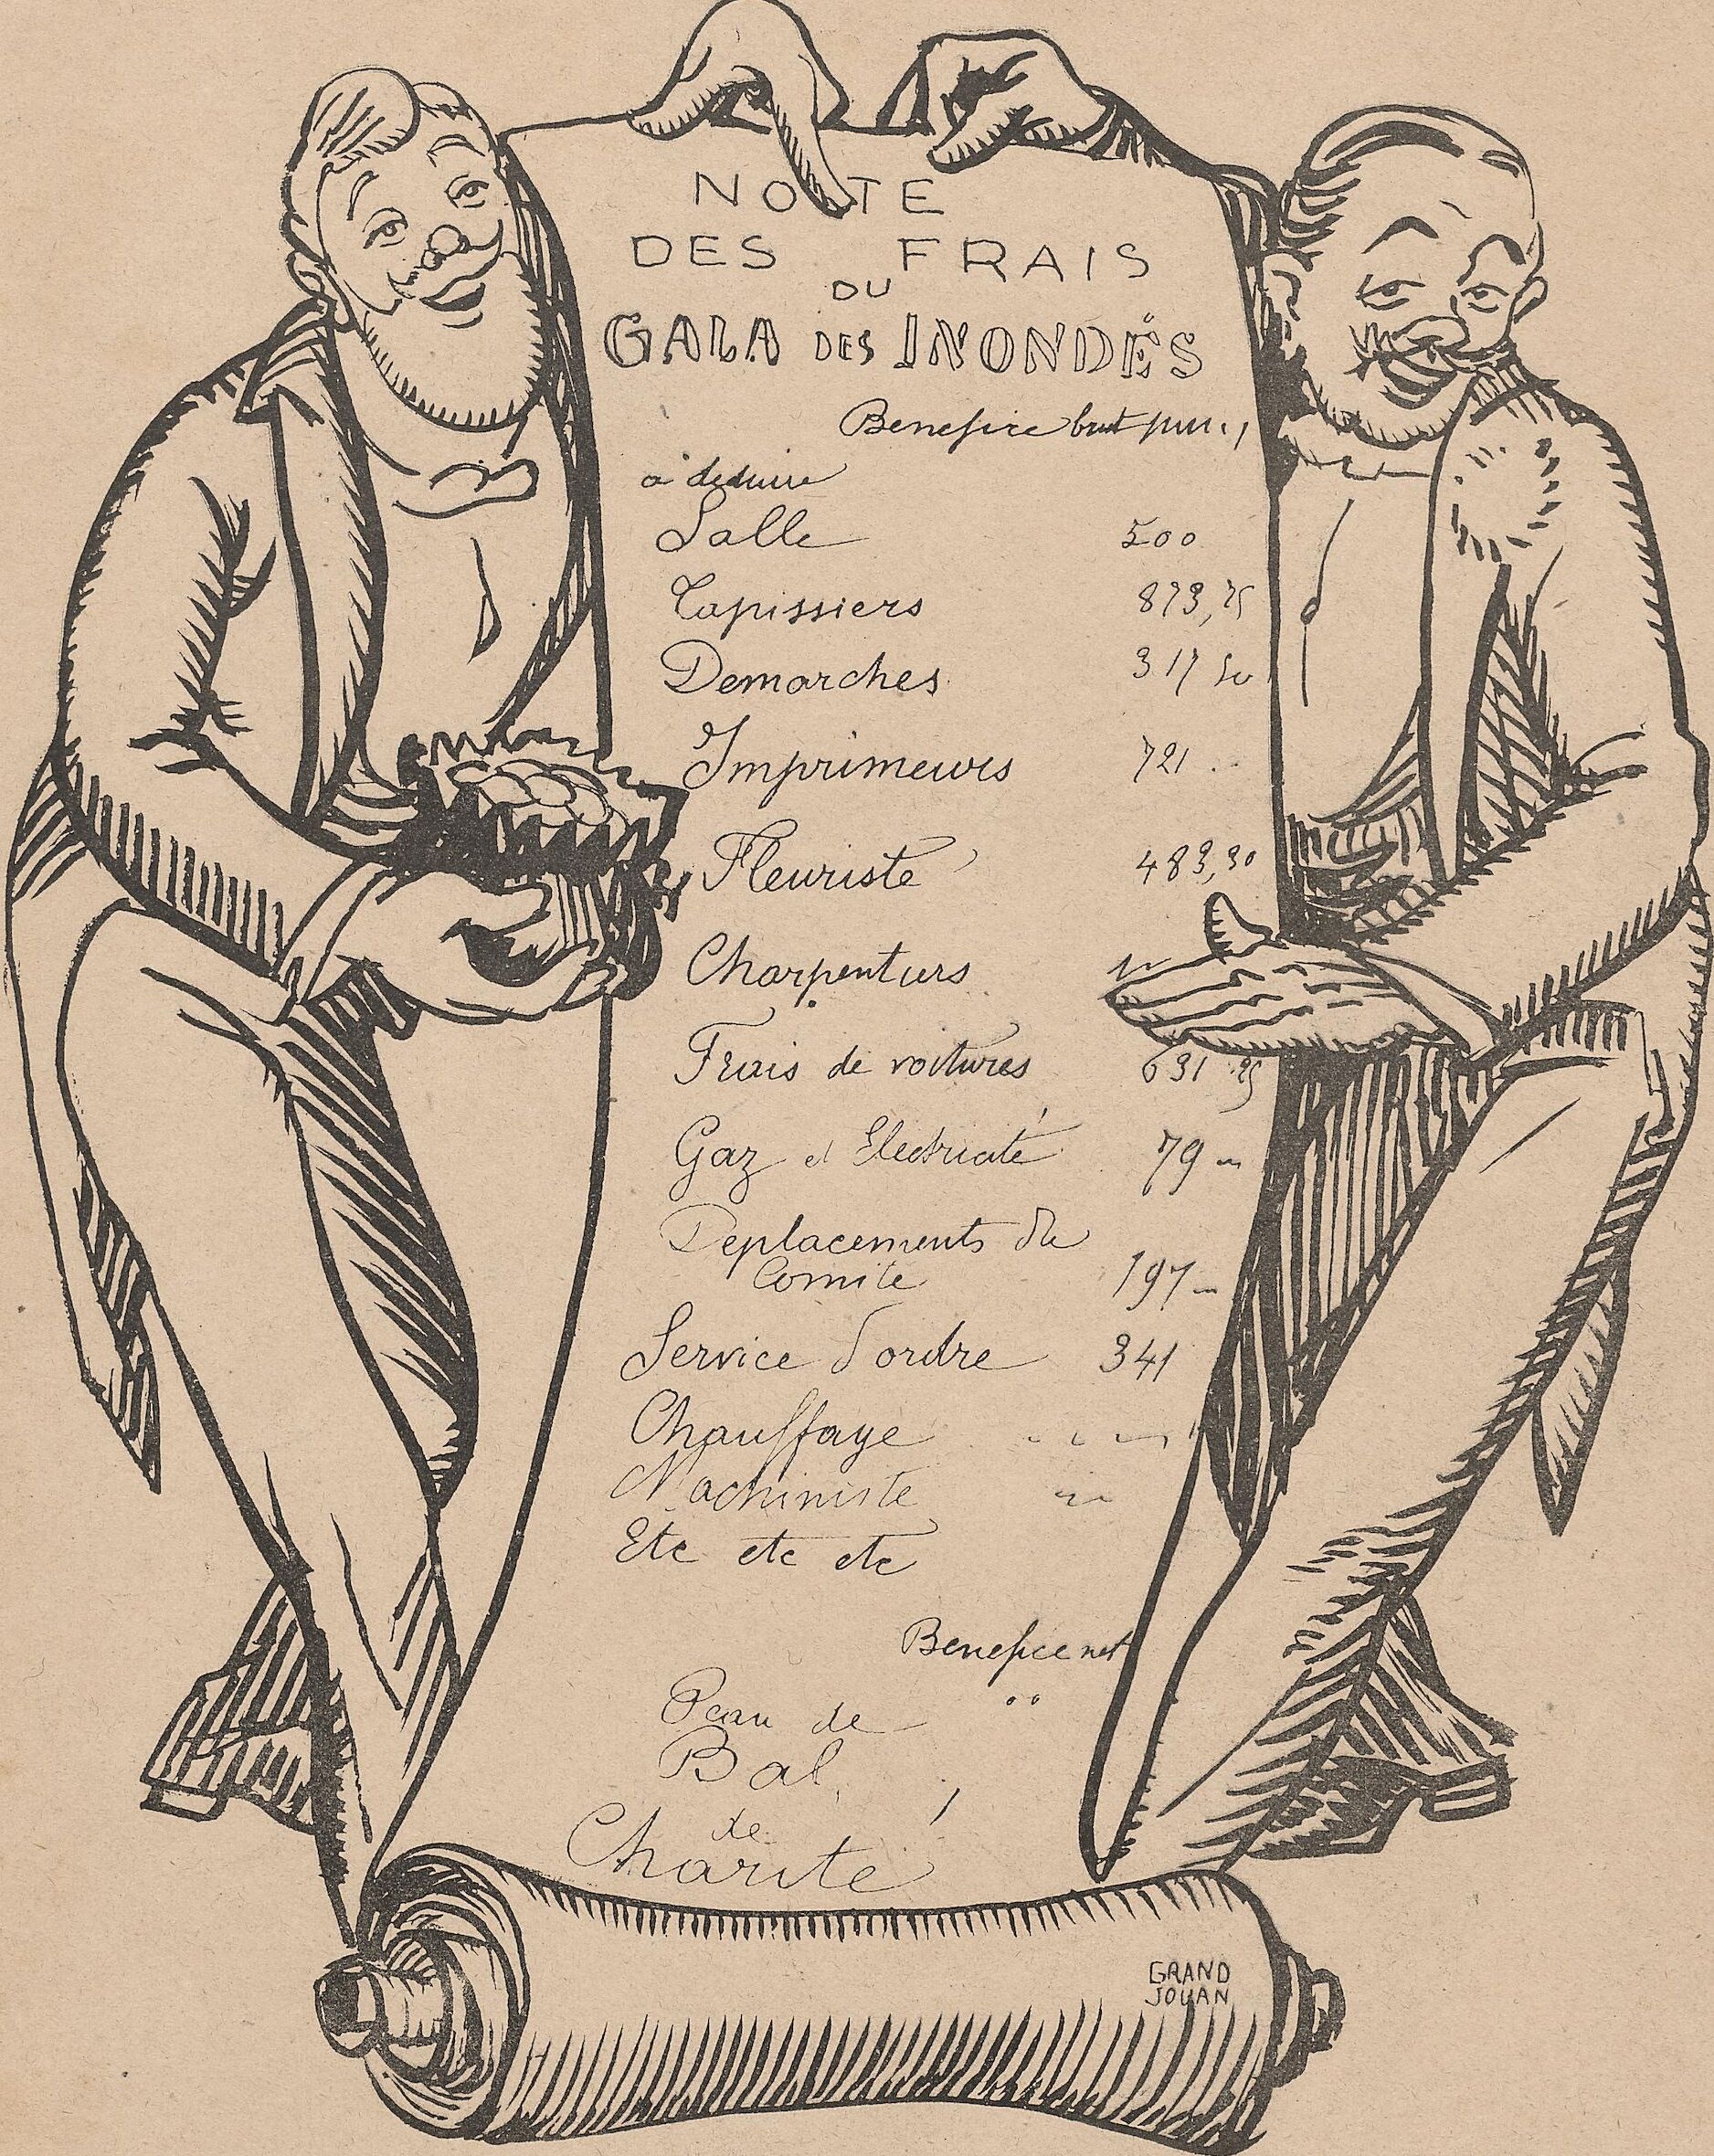 NOTE
DES FRAIS
DU
GALA DES INONDÉS
Benefice brut
a deduire
Salle 500
Tapissiers 873,25
Demarches 317 50
Imprimeurs 721
Fleuriste 483,30
Charpentiers
Frais de voitures 631 25
Gaz et Electricité 79
Deplacements du
Comite 197
Service d'ordre 341
Chauffage
Machiniste
Etc etc etc
Benefice net
Peau de
Bal
de
Charité
GRAND
JOUAN